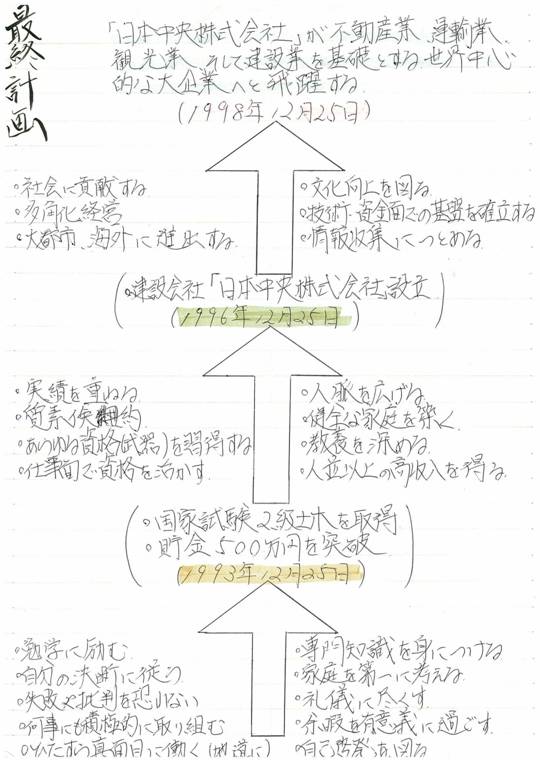 最終計画
「日本中央株式会社」が不動産業、運輸業、
観光業、そして建設業を基礎とする世界中心
的な大企業へと飛躍する
(1998年12月25日)
・社会に貢献する
・多角化経営
・大都市、海外に進出する
・文化向上を図る
・技術・資金面での基盤を確立する
・情報収集につとめる
・建設会社「日本中央株式会社」設立
(1996年12月25日)
・実績を重ねる
・質素倹約
・あらゆる資格(武器)を習得する
・仕事面で資格を活かす
・人脈を広げる
・健全な家庭を築く
・教養を深める
・人並以上の高収入を得る
・国家試験2級土木を取得
・貯金500万円を突破
(1993年12月25日)
・勉学に励む
・自分の決断に従う
・失敗や批判を恐れない
・何事にも積極的に取り組む
・ひたすら真面目に働く(地道に)
・専門知識を身につける
・家庭を第一に考える
・礼儀に尽くす
・余暇を有意義に過ごす
・自己啓発を図る